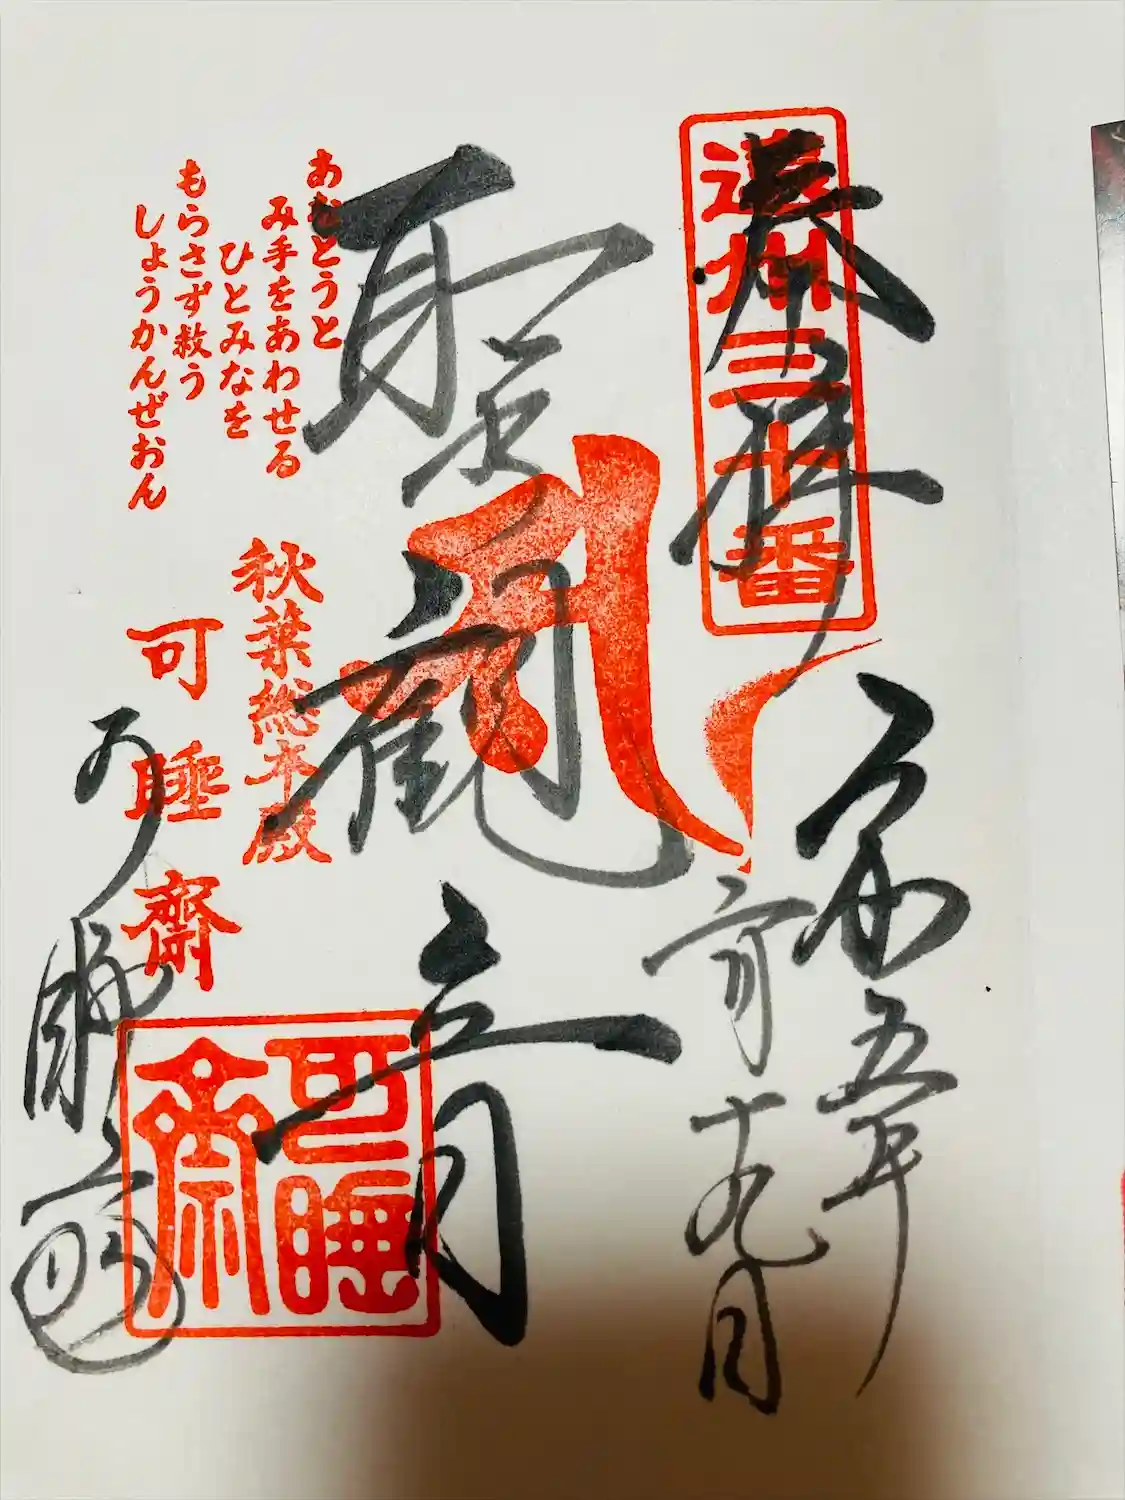 奉拝
遠州三十番
令和五年
六月十九日
聖観音
あなとうと
み手をあわせる
ひとみなを
もらさず救う
しょうかんぜおん
秋葉総本殿
可睡齋
可睡斎
可睡齋